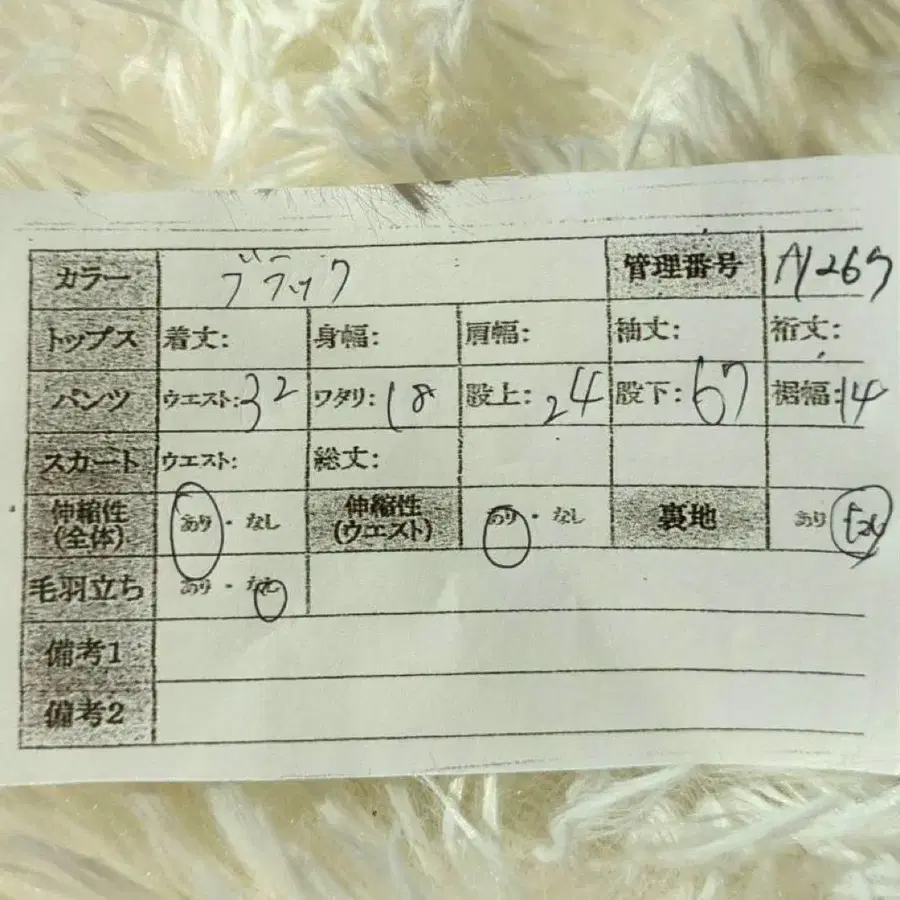 カラー ブラック 管理番号 A1267
トップス 着丈: 身幅: 肩幅: 袖丈: 裄丈:
パンツ ウエスト:32 ワタリ:18 股上:24 股下:67 裾幅:14
スカート ウエスト: 総丈:
伸縮性(全体) あり・なし 伸縮性(ウエスト) あり・なし 裏地 あり なし
毛羽立ち あり・なし
備考1
備考2